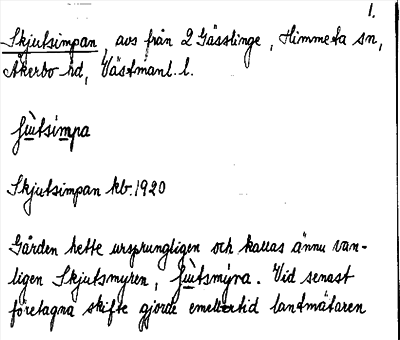 1.
Skjutsimpan, avs från 2 Gässlinge, Himmeta sn,
Åkerbo hd, Västmanl. l.
ʃɯ̀tsimpa
Skjutsimpan kb. 1920
Gården hette ursprungligen och kallas ännu van-
ligen Skjutsmyren, ʃɯ̀tsmýra. Vid senast
företagna skifte gjorde emellertid lantmätaren